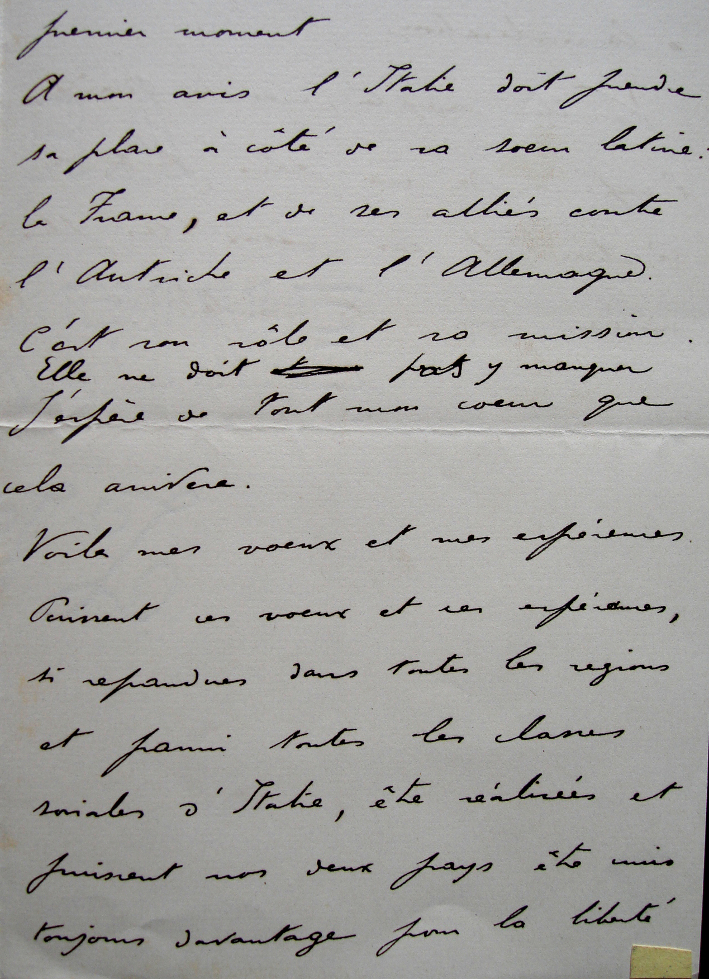 premier moment
A mon avis l'Italie doit prendre
sa place à côté de sa soeur latine:
la France, et de ses alliés contre
l'Autriche et l'Allemagne.
C'est son rôle et sa mission.
Elle ne doit pas y manquer
J'espère de tout mon coeur que
cela arrivera.
Voila mes voeux et mes espérences.
Puissent ces voeux et ces espérences,
si repandues dans toutes les regions
et parmi toutes les classes
sociales d'Italie, être réalisées et
puissent nos deux pays être unis
toujours davantage pour la liberté